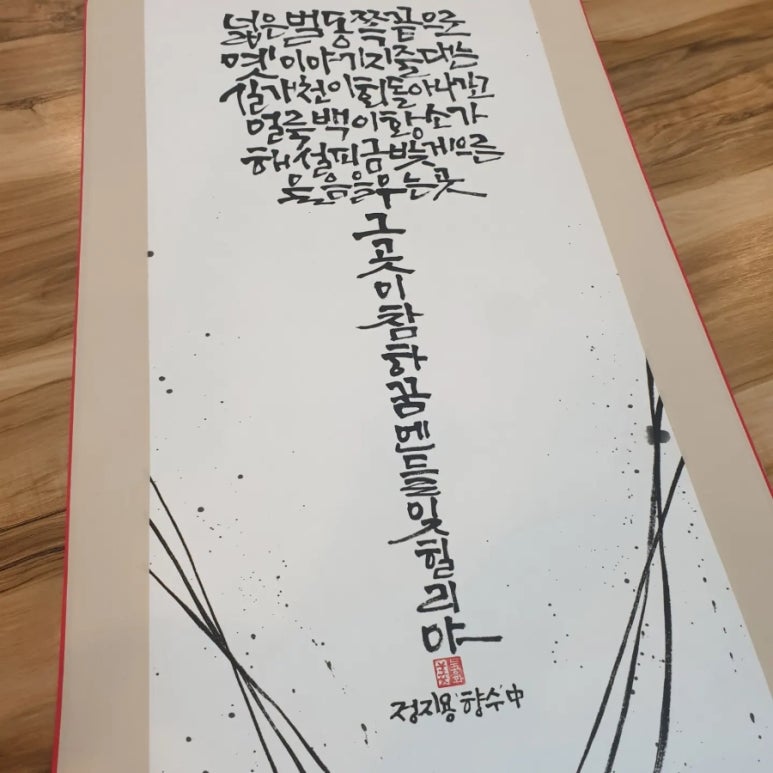 넓은벌동쪽끝으로
옛이야기지줄대는
실개천이회돌아나가고
얼룩백이황소가
해설피금빛게으른
울음을우는곳
그곳이참하꿈엔들잊힐리야
정지용 '향수' 中